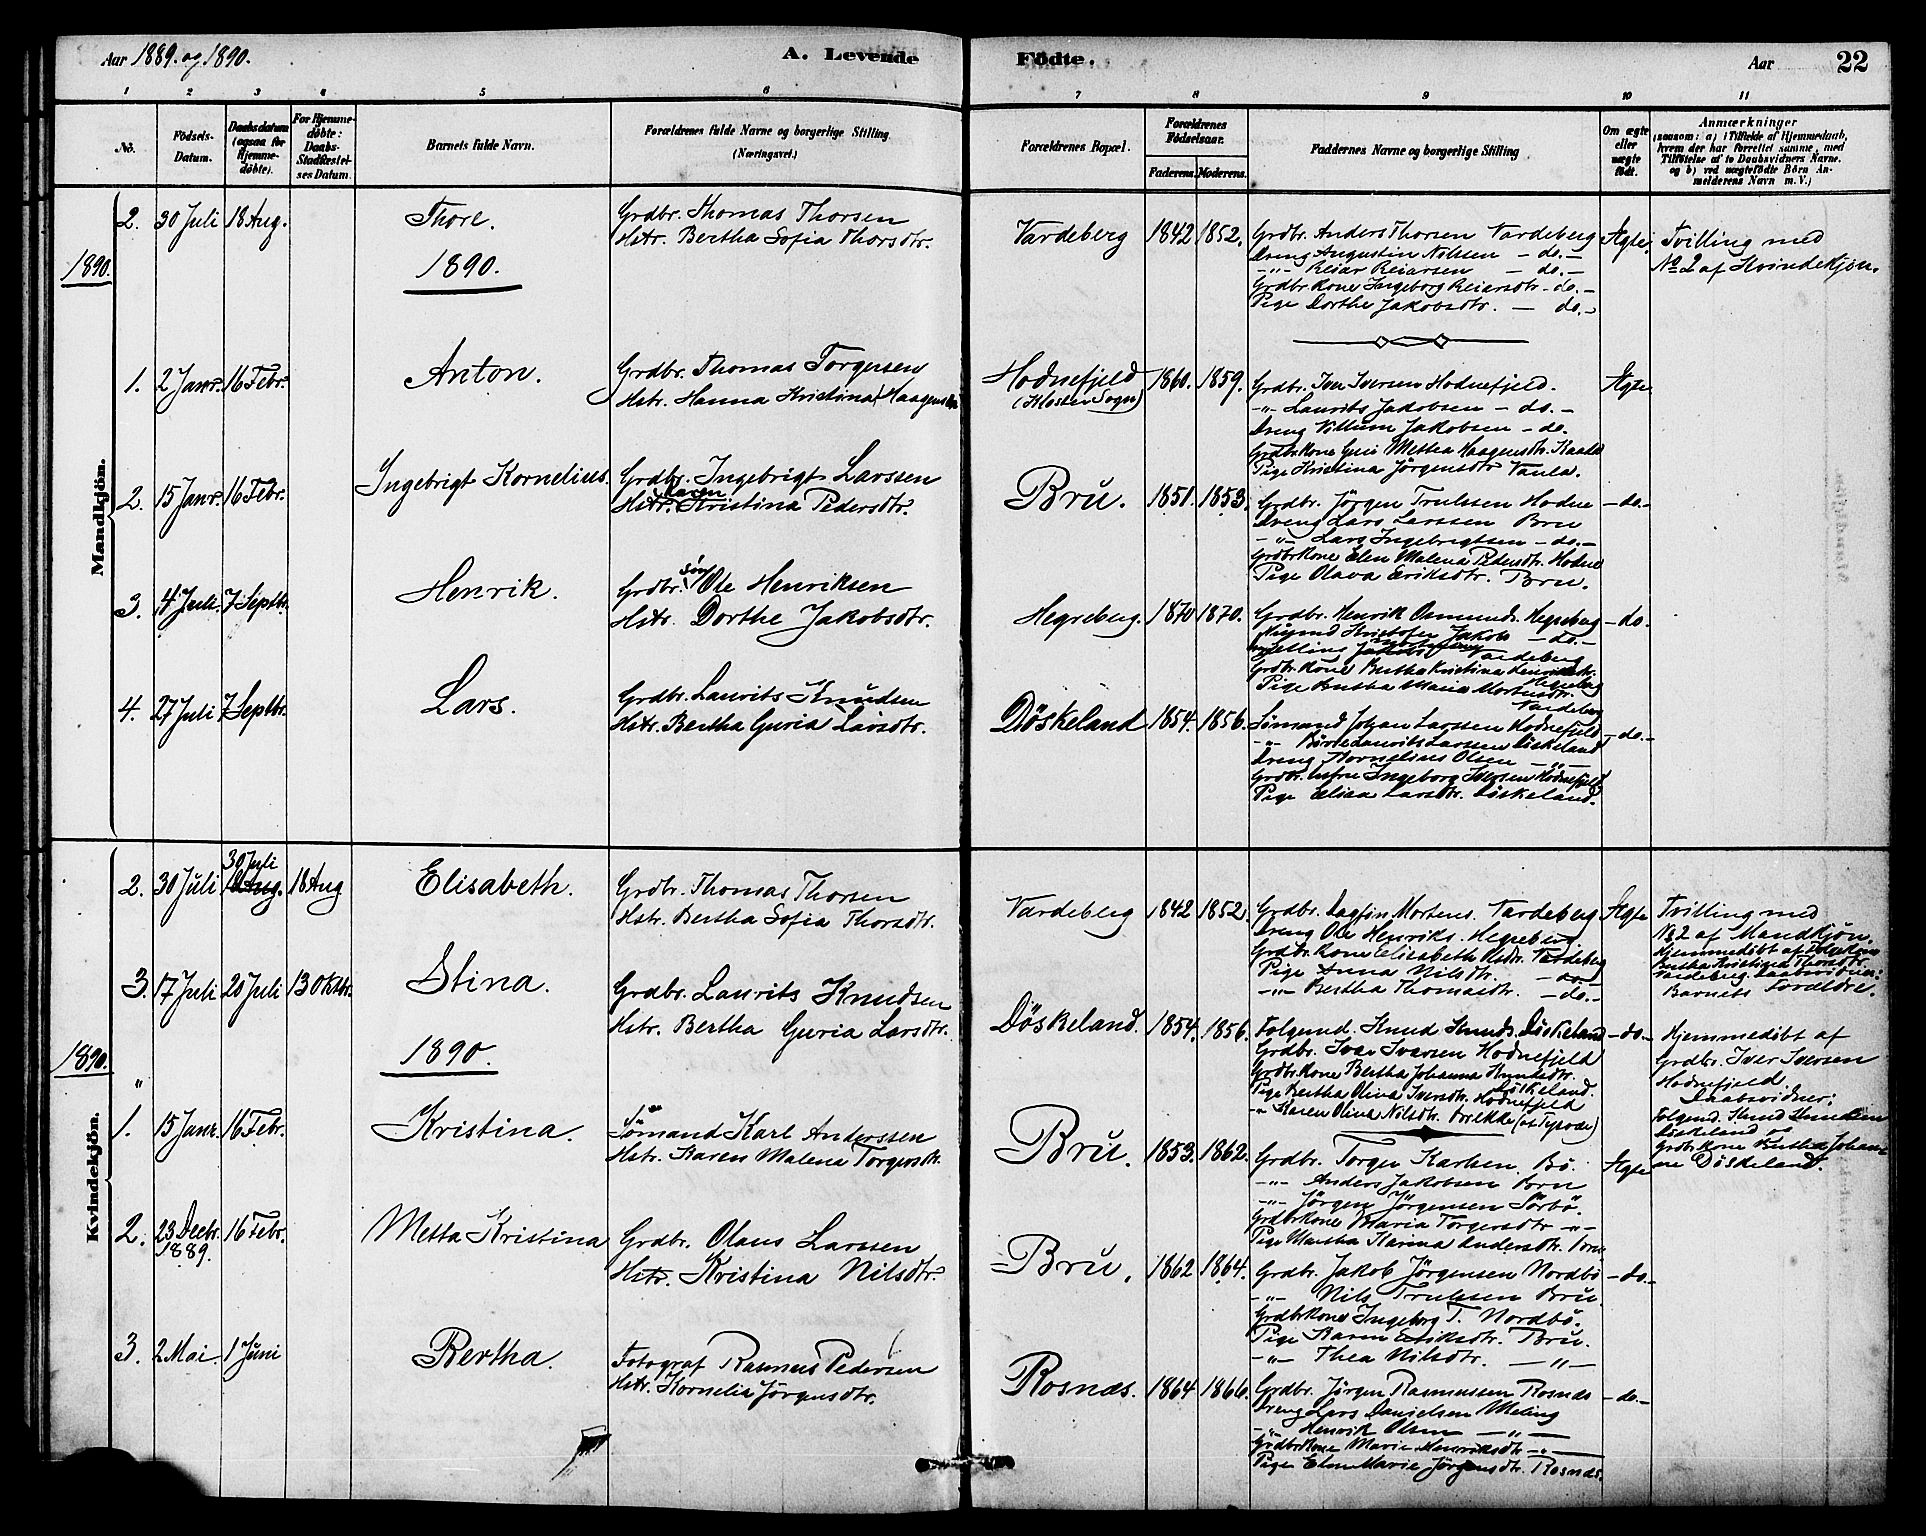 Aar 1889. og 1890.
A. Levende
Födte.
Aar
22
1 2 3 4 5 6 7 8 9 10 11
No.
Födsels-Datum.
Daabsdatum (ogsaa for Hjemme-döbte).
For Hjemme-döbte: Daabs-Stadfæstel-ses Datum.
Barnets fulde Navn.
Forældrenes fulde Navne og borgerlige Stilling. (Næringsvei.)
Forældrenes Bopæl.
Forældrenes Födselsaar.
Faderens. Moderens.
Faddernes Navne og borgerlige Stilling
Om ægte eller uægte födt.
Anmærkninger
(saasom: a) i Tilfælde af Hjemmedaab,
hvem der har forrettet samme, med
Tilföielse af to Daabsvidners Navne.
og b) ved uægtefödte Börn An-
melderens Navn m. V.)
Mandkjön.
2. 30 Juli 18 Aug. Thore. Grdbr. Thomas Thorsen
Hstr. Bertha Sofia Thorsdtr.
Vardeberg 1842 1852. Grdbr. Anders Thorsen Vardeberg
Dreng Augustin Nilssen - do. -
-"- Reiar Reiarsen - do. -
Grdbr kone Ingeborg Reiarsdtr - do. -
Pige Dorthe Jakobsdtr. - do. -
Ægte. Tvilling med
No 2 af Kvindekjön.
1890.
1890.
1. 2 Janr. 16 Febr. Anton. Grdbr. Thomas Torgersen
Hstr. Hanna Kristina Haagensdtr
Hodnefjeld
(Kloster Sogn)
1860. 1859. Grdbr. Iver Iversen Hodnefjeld.
-"- Laurits Jakobsen - do. -
Dreng Villum Jakobsen - do.
Grdbrkone Mettea Haagensdtr.
Pige Kristina Jörgensdtr
Ægte
2. 15 Janr. 16 Febr. Ingebrigt Kornelius. Grdbr. Ingebrigt Larssen
Karen
Hstr. Kristina Pedersdtr.
Bru. 1851. 1853. Grdbr. Jörgen Trulssen Hodne
Dreng Lars Larssen Bru
-"- Lars Ingebrigtsen - do. -
Grdbrkone Elen Malena Pedersdtr Hodne
Pige Olava Eriksdtr. Bru.
- do. -
3. 4 Juli 7 Septbr. Henrik. Grdbr. sön Ole Henriksen
Hstr. Dorthe Jakobsdtr.
Hegreberg. 1870 1870. Grdbr. Henrik Osmunds. Hegreberg
Kristofer Jakobs - do. -
Vardeberg
Grdbrkone Bertha Kristina Henriksdtr.
Hegreberg
Pige Bertha Maria Mortensdtr.
Vardeberg
- do.
4. 27 Juli 7 Septbr. Lars. Grdbr. Laurits Knudsen
Hstr. Bertha Guria Larsdtr.
Döskeland 1854. 1856. Sömand Johan Larssen Hodnefjeld
-"- Larssen Döskeland
Dreng Kornelius Olsen -"-
Grdbr. Ingeborg Iversen Hodnefjeld
Pige Elisa Larsdtr. Döskeland.
- do. -
Kvindekjön.
2. 30 Juli 30 Juli 18 Aug. 18 Aug Elisabeth. Grdbr. Thomas Thorsen
Hstr. Bertha Sofia Thorsdtr.
Vardeberg 1842 1852. Grdbr. Dagfin Mortens. Vardeberg
Dreng Ole Henriks. Hegreberg
Grdbr. kone Elisabeth Olsdtr. Vardeberg
Pige Anna Nilsdtr. - do.
-"- Bertha Thomasdtr. - do. -
Ægte Tvilling med
No 2 af Mandkjön.
Hjemmedöbt af
Bertha Kristina Thorsdtr.
Vardeberg. Daabsvidner:
Barnets Forældre.
3. 17 Juli 20 Juli 13 Oktbr. Stina. Grdbr. Laurits Knudsen
Hstr. Bertha Guria Larsdtr.
Döskeland. 1854. 1856. Folgemd. Knud Knuds. Döskeland
Grdbr. Iver Iversen Hodnefjeld
Grdbrkone Bertha Johanna Knutsdtr.
Döskeland.
Pige Bertha Olina Iversdtr. Hodnefjeld
-"- Karen Olina Nilsdtr. Brekke (af Tysvær)
- do. - Hjemmedöbt af
Grdbr. Iver Iversen
Hodnefjeld.
Daabsvidner:
Folgemd. Knud Knudsen
Döskeland og
Grdbr kone Bertha Johan-
ne Döskeland.
1890.
1890.
1. 15 Janr. 16 Febr. Kristina. Sömand Karl Anderssen
Hstr. Karen Malena Torgersdtr.
Bru. 1853. 1862. Grdbr. Torger Karlsen Bö.
-"- Anders Jakobsen Bru
-"- Jörgen Jörgensen Sörbö.
Grdbrkone Maria Torgersdtr -"-
Pige Martha Karina Andersdtr. Bru
Ægte
2. 23 Decbr. 1889. 16 Febr. Metta Kristina Grdbr. Olaus Larssen
Hstr. Kristina Nilsdtr.
Bru. 1862 1864. Grdbr. Jakob Jörgensen Nordbö
-"- Nils Trulssen Bru.
Grdbrkone Ingeborg T. Nordbö.
Pige Karen Eriksdtr. Bru.
-"- Thea Nilsdtr. -"-
- do. -
3. 2 Mai. 1 Juni Bertha. Fotograf Rasmus Pedersen
Hstr. Kornelia Jörgensdtr.
Rosnæs. 1864 1866. Grdbr. Jörgen Rasmussen Rosnæs
Dreng Lars Danielsen Meling
-"- Henrik Olsen -"-
Grdbrkone Marie Henriksdtr -"-
Pige Elen Marie Jörgensdtr. Rosnæs.
- do. -